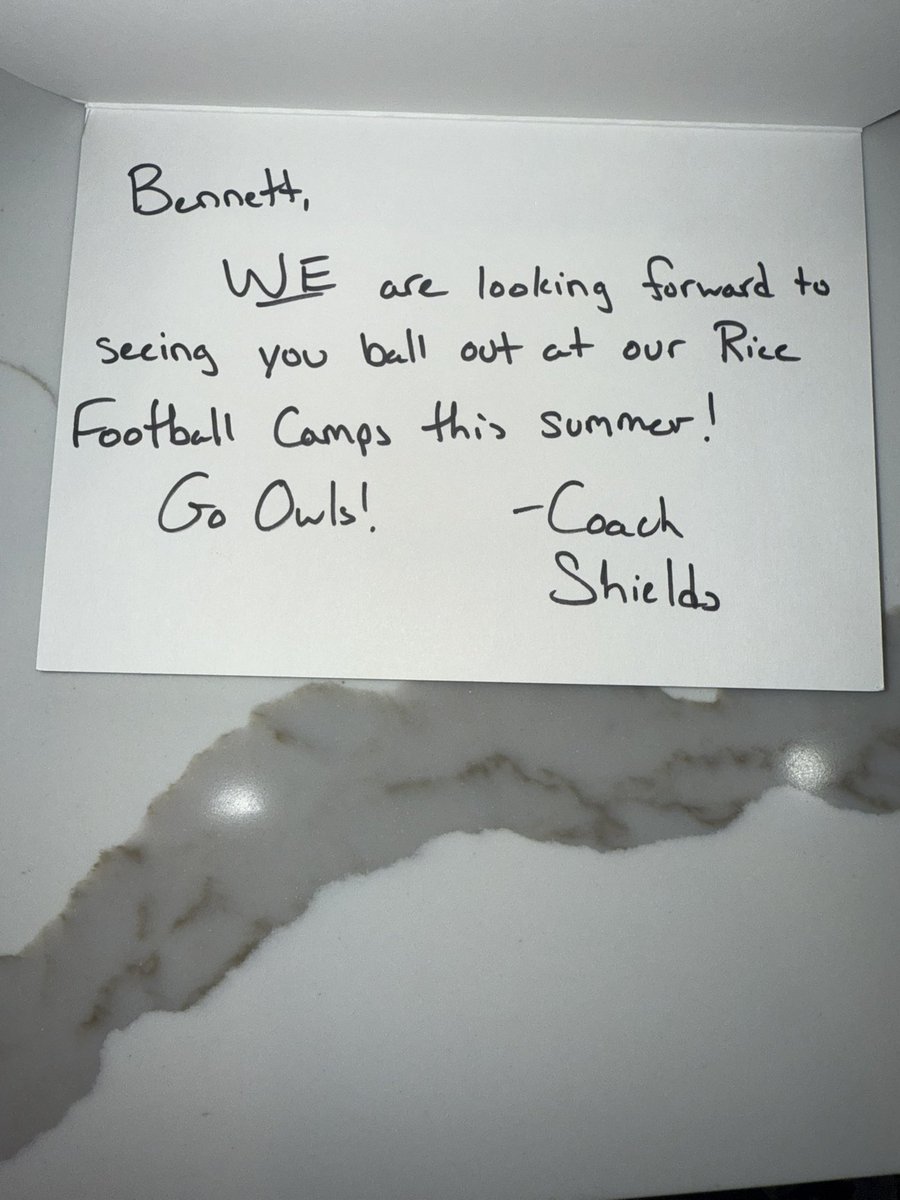 Bennett,
WE are looking forward to
seeing you ball out at our Rice
Football Camps this summer!
Go Owls! -Coach
Shields